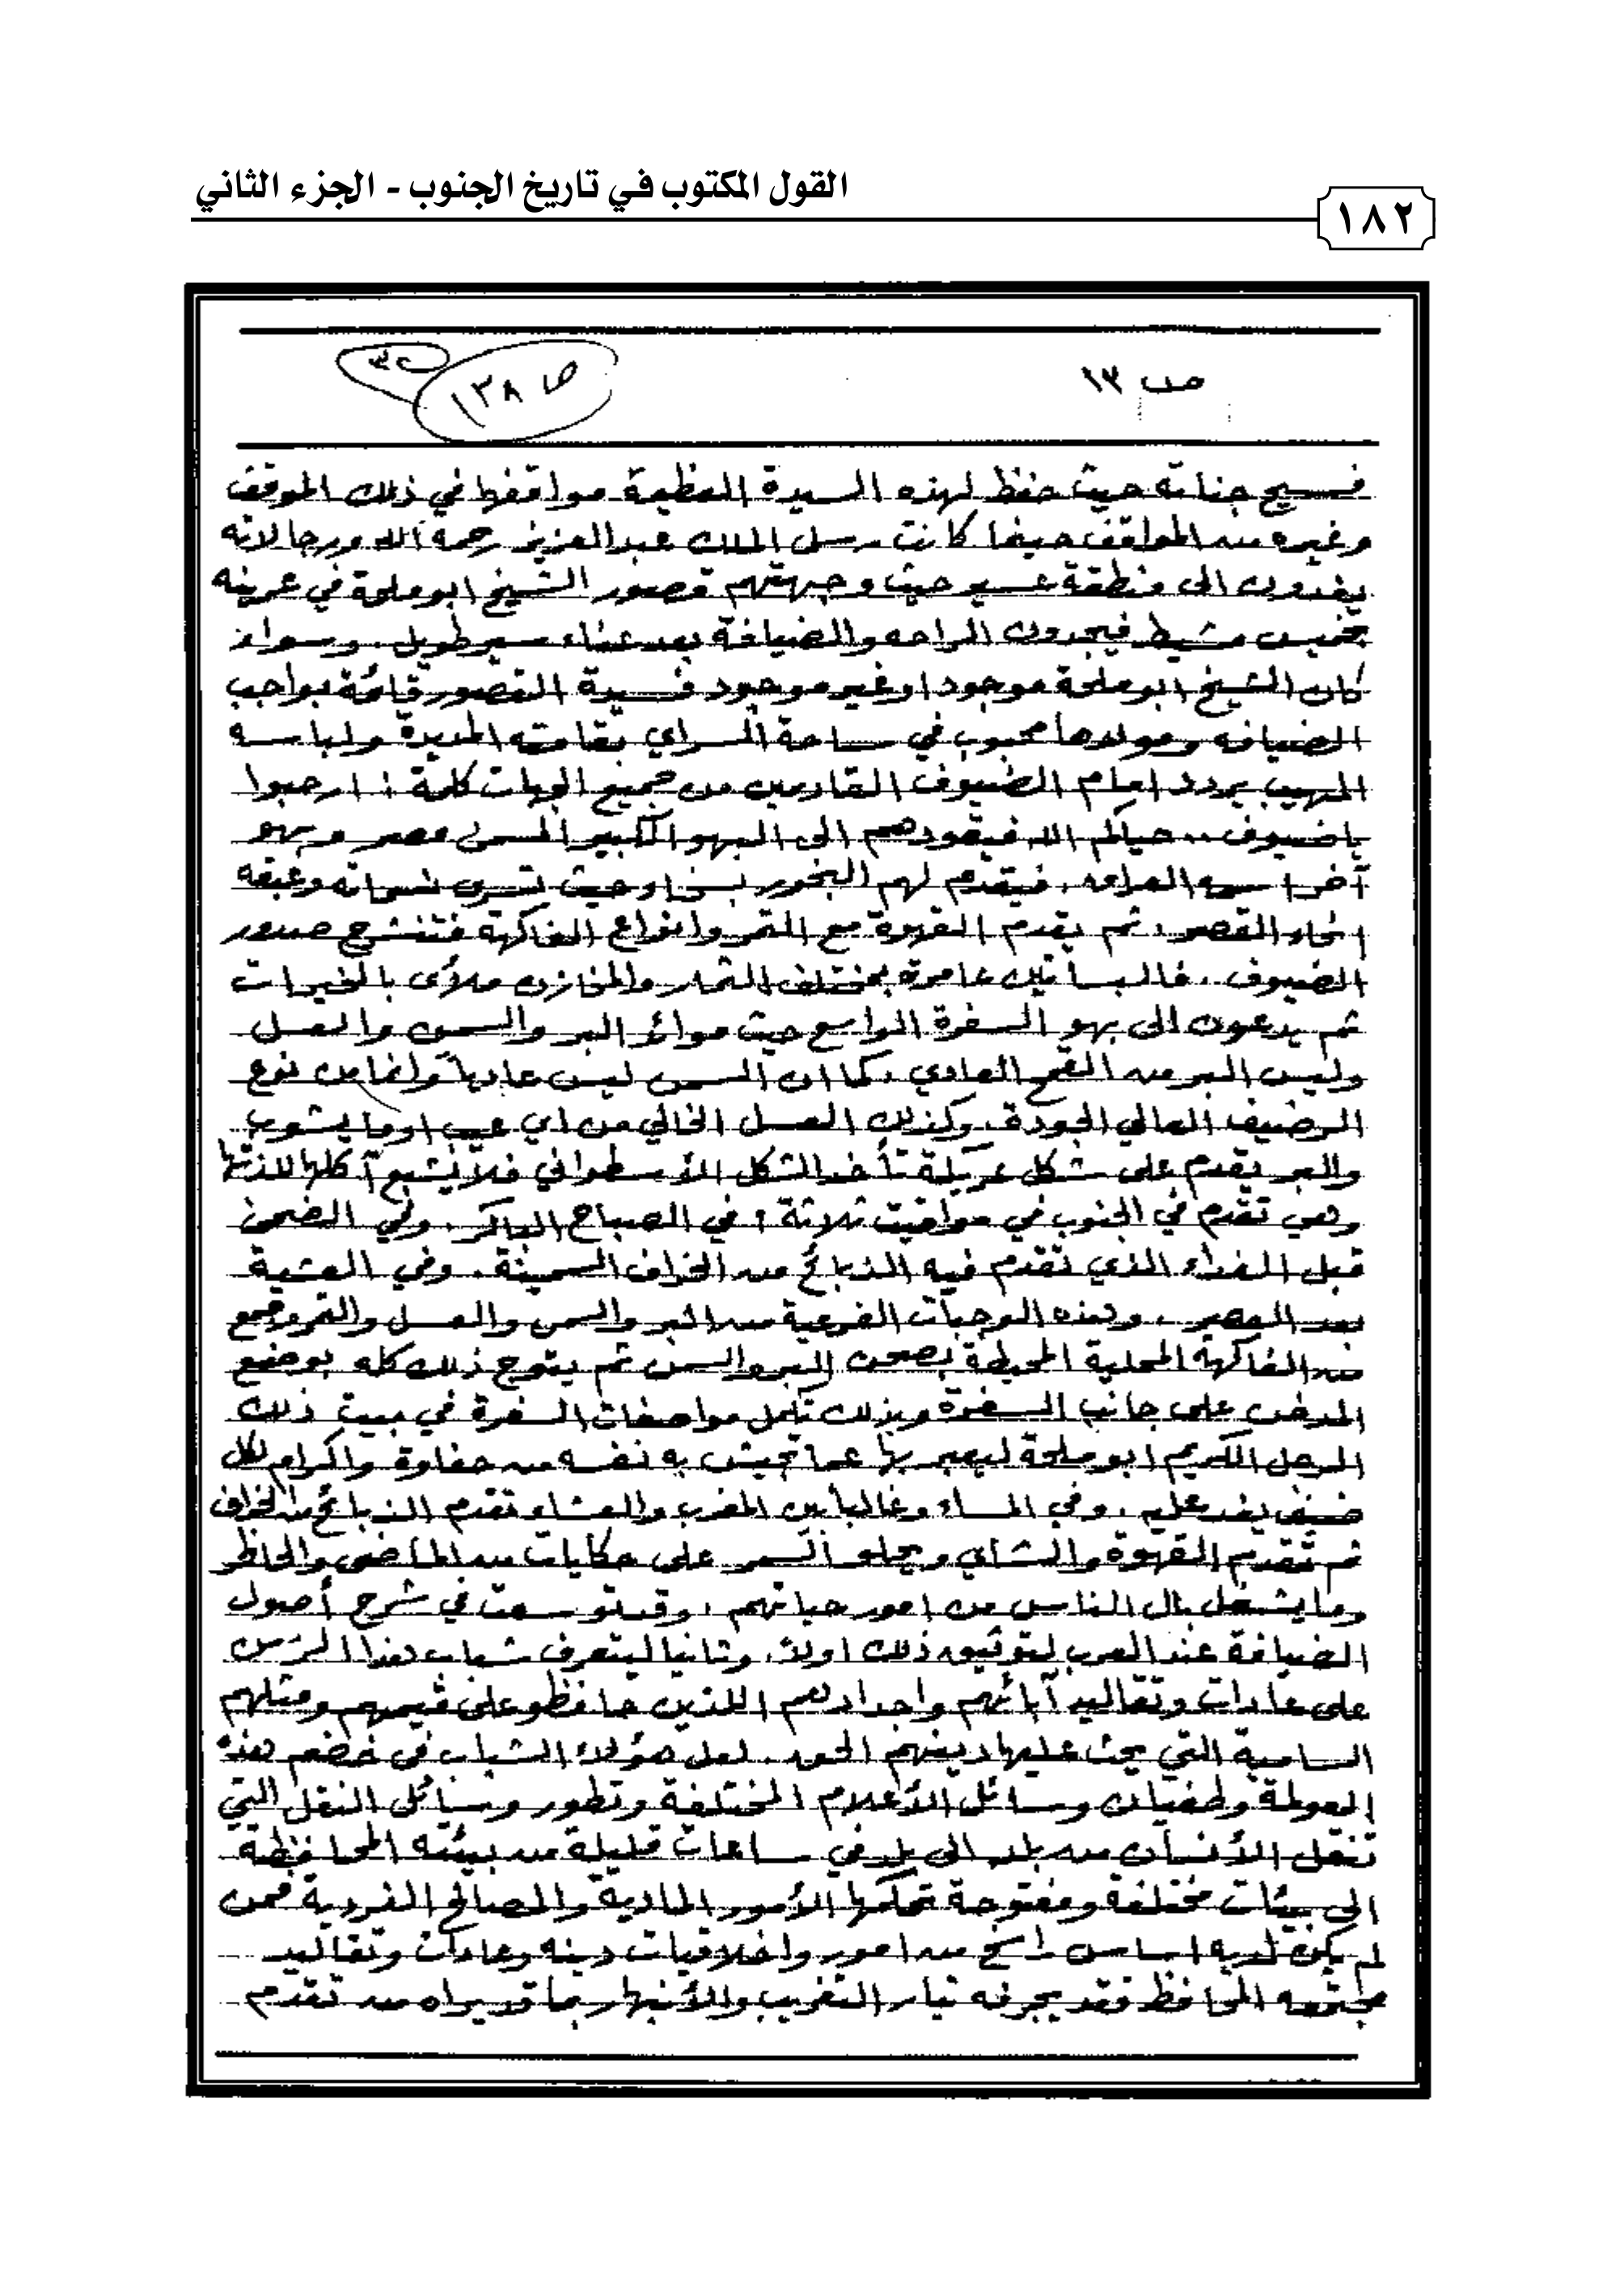 القول المكتوب في تاريخ الجنوب - الجزء الثاني
١٨٢
ص ١٣
ص ١٣٨
فسيح جناته حيث حفظ لهذه السيدة العظيمة مواقفها في ذلك الموقف
وغيره من المواقف حينما كانت رسل الملك عبدالعزيز رحمه الله ورجالاته
يفدون الى منطقة عسير حيث وجهتهم قصور الشيخ ابوملحة في عرينه
بخميس مشيط فيجدون الراحه والضيافة بعد عناء سير طويل. وسواء
كان الشيخ ابوملحة موجود او غير موجود فسيدة القصور قائمة بواجب
الضيافه ومولدها محبوب في ساحة السراي بقامته المديدة ولباسه
المهيب يردد امام الضيوف القادمين من جميع الجهات كلمة : ارحبوا
ياضيوف .. حياكم الله فيقودهم الى البهو الكبير المسمى مصر وبهو
آخر اسمه العراق. فيقدم لهم البخور بسخاء حيث تسري نسماته وعبقه
انحاء القصر. ثم يقدم القهوة مع التمر وانواع الفاكهة فتنشرح صدور
الضيوف. فالبساتين عامرة بمختلف الثمار والمخازن ملأى بالخيرات
ثم يدعون الى بهو السفرة الواسع حيث موائد البر والسمن والعسل
وليس البر من القمح العادي. كما ان السمن ليس عادياً وانما من نوع
الرضيف العالي الجودة. وكذلك العسل الخالي من اي عيب او ما يشوب
والبر يقدم على شكل عريكة تأخذ الشكل الأسطواني فلا يشبع آكلها للذتها
وهي تقدم في الجنوب في مواقيت ثلاثة : في الصباح الباكر. وفي الضحى
قبل الغداء الذي تقدم فيه الذبائح من الخراف السمينة. وفي العشية
بعد العصر. وهذه الوجبات الفرعية من البر والسمن والعسل والتمر وجمع
من الفاكهة المحلية المحيطة بصحن البر والسمن ثم يتوج ذلك كله بوضع
المرض على جانب السفرة وبذلك تكمل مواصفات السفرة في بيت ذلك
الرجل الكريم ابوملحة ليعبر بها عما تجيش به نفسه من حفاوة واكرام لكل
ضيف يفد عليه. وفي المساء وغالباً بين المغرب والعشاء تقدم الذبائح من الخراف
ثم تقدم القهوة والشاي ويحلو السمر على حكايات من الماضي والحاظر
وما يشغل بال الناس من امور حياتهم. وقد توسعت في شرح أصول
الضيافة عند العرب لتوثيق ذلك اولاً. وثانيا ليتعرف شباب هذا الزمن
على عادات وتقاليد آبائهم واجدادهم اللذين حافظو على قيمهم ومثلهم
السامية التي يحث عليها دينهم الحق. لعل هؤلاء الشباب في خضم هذه
العولمة وطغيان وسائل الأعلام المختلفة وتطور وسائل النقل التي
تنقل الأنسان من بلد الى بلد في ساعات قليلة من بيئته المحافظة
الى بيئات مختلفة ومفتوحة تحكمها الأمور المادية والمصالح الفردية فمن
لم يكن لديه اساس راسخ من امور واخلاقيات دينه وعادات وتقاليد
مجتمعه المحافظ فقد يجرفه تيار التغريب والأنبهار بما قد يراه من تقدم